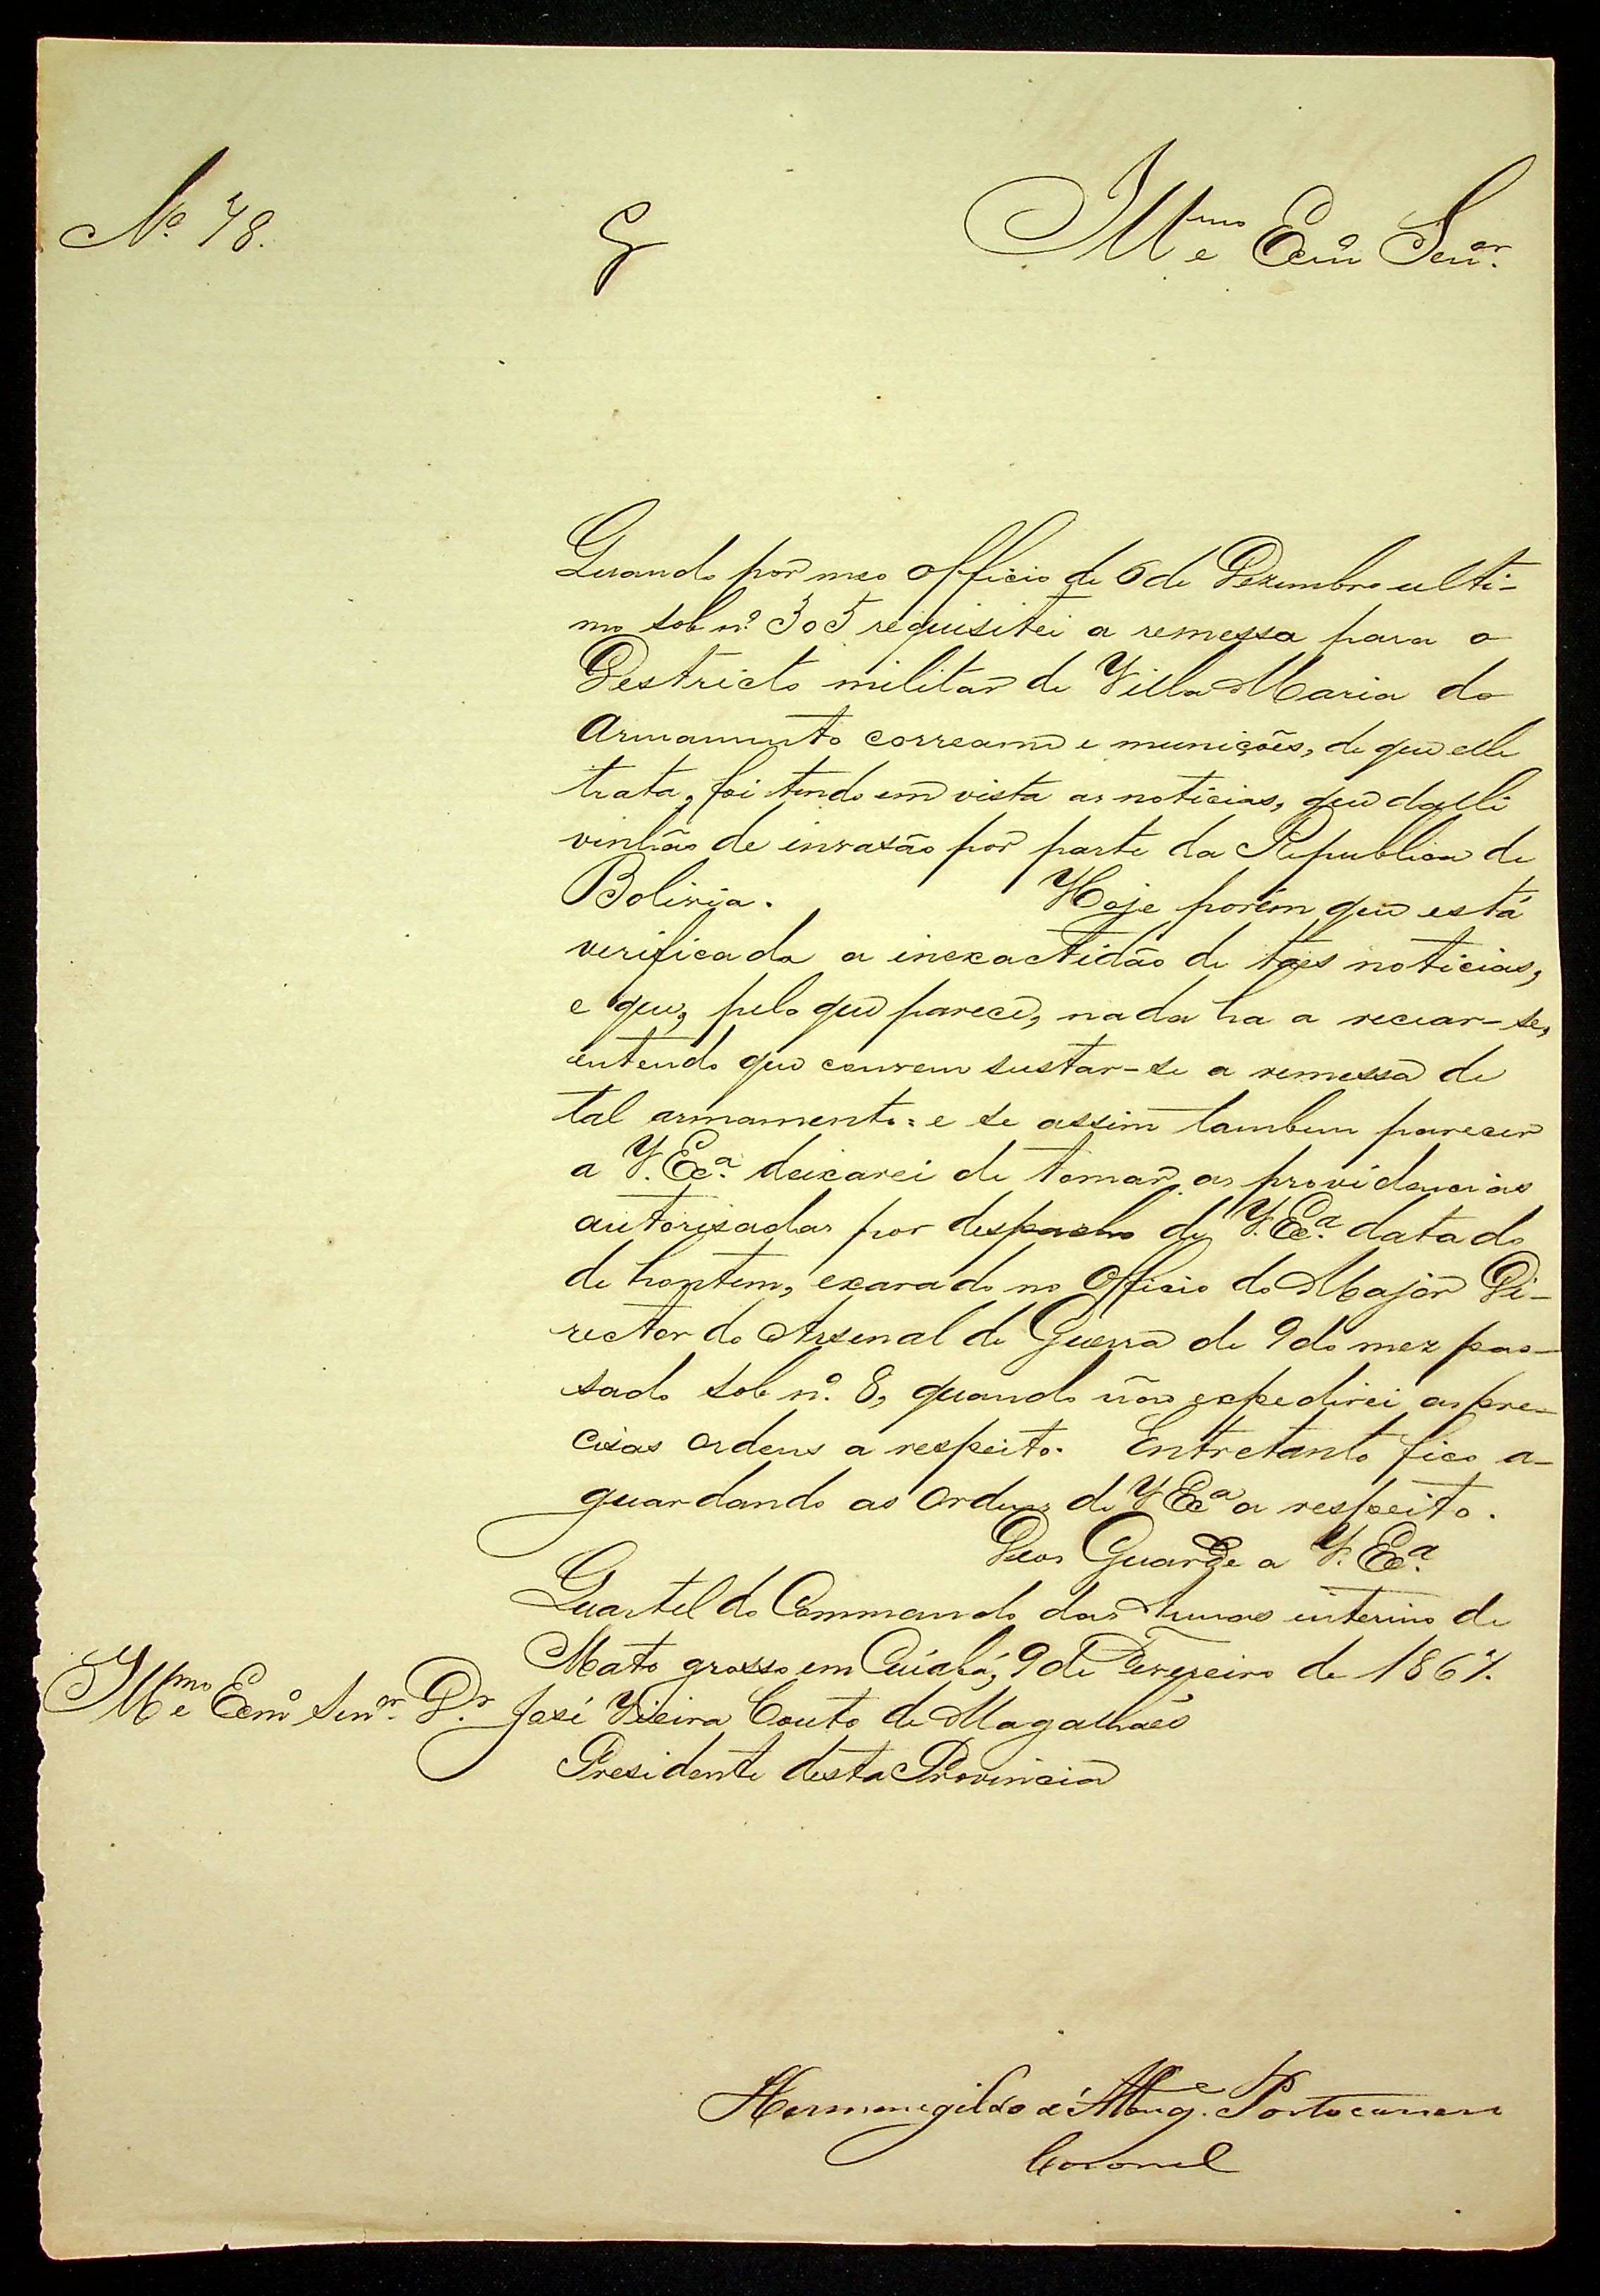 Nº 48.
Illmo e Exmº Senor.
Quando por meo officio de 6 de Dezembro ulti-
mo sob nº 305 requisitei a remessa para o
Destricto militar de Villa Maria do
Armamento correame e munições, de que elle
trata, foi tendo em vista as noticias, que d'alli
vinhão de invazão por parte da Republica de
Bolivia. Hoje porém que está
verificada a inexactidão de táes noticias,
e que, pelo que parece, nada ha a recear-se,
entendo que convem sustar-se a remessa de
tal armamento: e se assim tambem parecer
a V. Exª. deixarei de tomar as providencias
autorisadas por despacho de V. Exª. datado
de hontem, exarado no Officio do Major Di-
rector do Arsenal de Guerra de 9 do mez pas-
sado sob nº. 8, quando não expedirei as pre-
cisas ordens a respeito. Entretanto fico a-
guardando as Ordens de V Exª a respeito.
Deos Guarde a V. Exª.
Quartel do Commando das Armas interino de
Mato grosso em Cuiabá, 9 de Fevereiro de 1867.
Illmo e Exmº Senor. Dr. José Vieira Couto de Magalhães
Presidente desta Provincia
Hermenegildo d'Albuqe. Portocarrero
Coronel